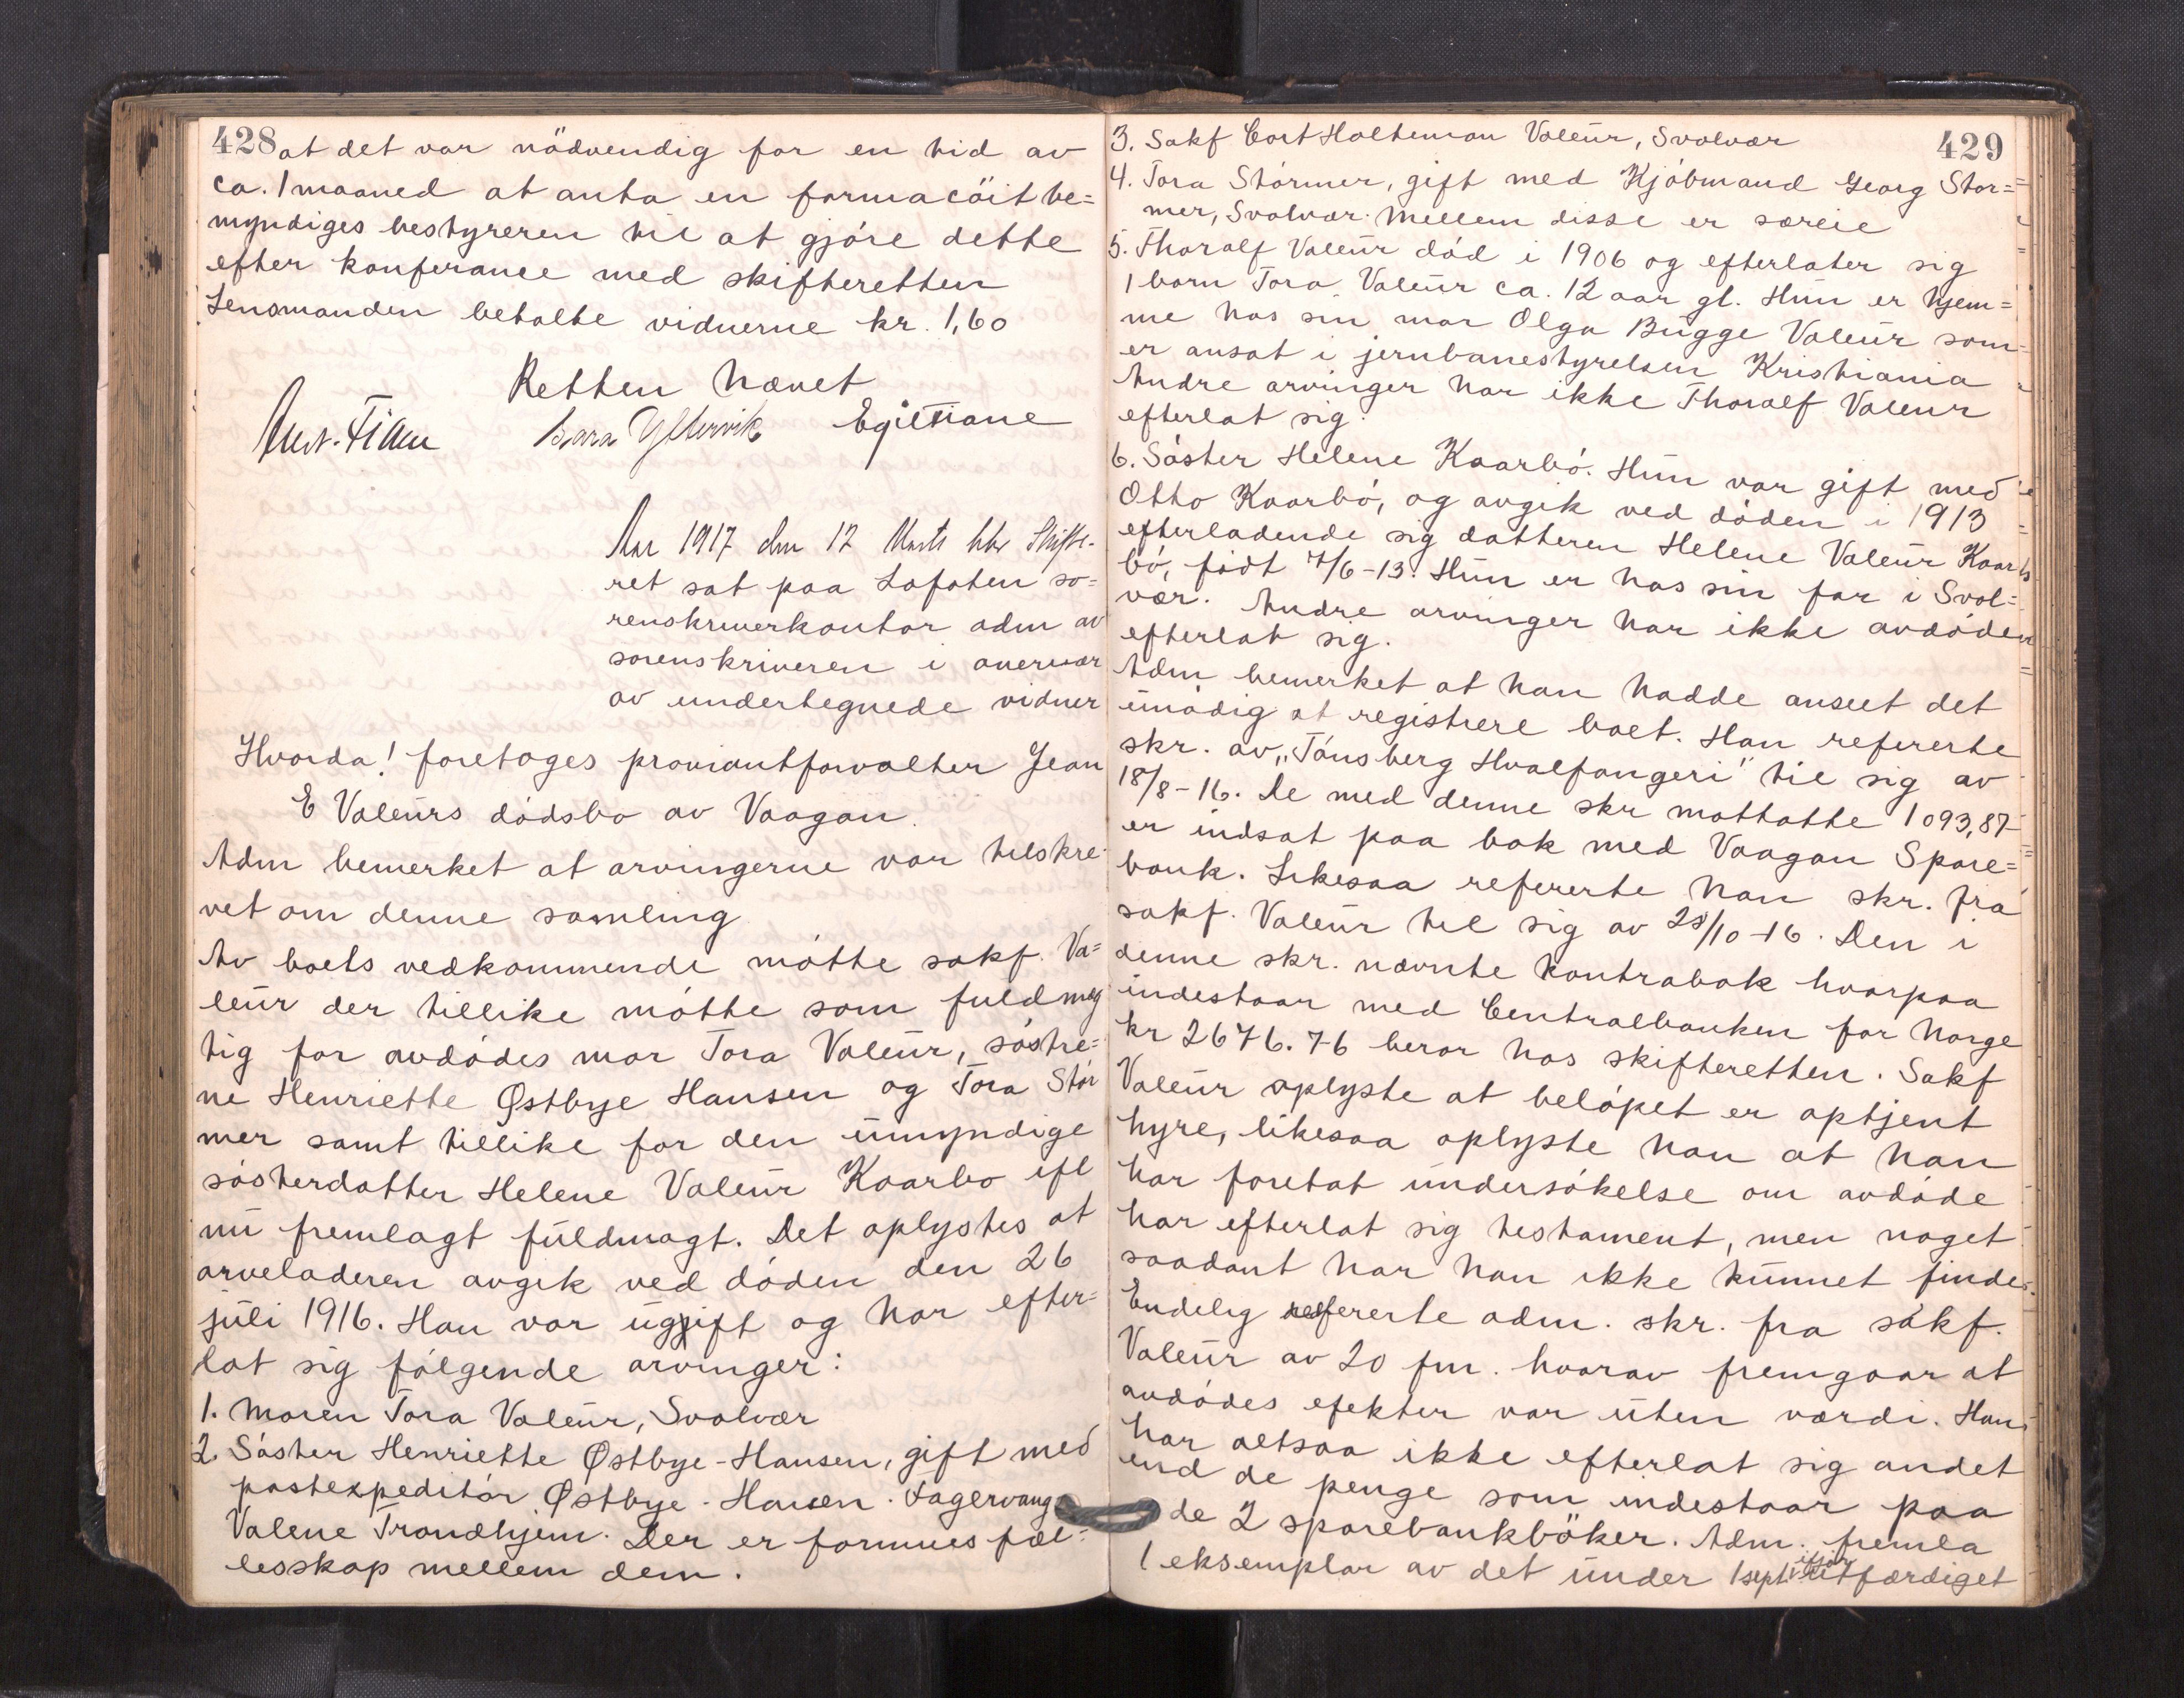 428
at det var nödvendig for en tid av
ca. 1 maaned at anta en farmacöit be=
myndiges bestyreren til at gjöre dette
efter konferance med skifteretten
Lensmanden betalte vidnerne kr. 1,60
Retten hævet
Yttervik
Aar 1917 den 12 Marts blev Skifte-
ret sat paa Lofoten so=
renskriverkontor adm av
sorenskriveren i overvær
av undertegnede vidner
Hvorda! foretoges proviantforvalter Jean
E Valeurs dödsbo av Vaagan.
Adm bemerket at arvingerne var tilskre-
vet om denne samling
Av boets vedkommende mötte sakf. Va=
leur der tillike mötte som fuldmæg
tig for avdödes mor Tora Valeur, söstre=
ne Henriette Østbye Hansen og Tora Stör
mer samt tillike for den umyndige
sösterdatter Helene Valeur Kaarbo ifl
nu fremlagt fuldmagt. Det oplystes at
arveladeren avgik ved döden den 26
juli 1916. Han var ugift og har efter=
lat sig fölgende arvinger:
1. Moren Tora Valeur, Svolvær
2. Söster Henriette Østbye-Hansen, gift med
postexpeditör Østbye-Hansen. Fagervang
Valene Trondhjem. Der er formues fæl=
lesskap mellem dem.
429
3. Sakf Cort Holteman Valeur, Svolvær
4. Tora Störmer, gift med Kjöbmand Georg Stor=
mer, Svolvær. Mellem disse er særeie
5. Thoralf Valeur död i 1906 og efterlater sig
1 barn Tora Valeur ca. 12 aar gl. Hun er hjem=
me hos sin mor Olga Bugge Valeur som
er ansat i jernbanestyrelsen Kristiania
Andre arvinger har ikke Thoralf Valeur
efterlat sig.
6. Söster Helene Kaarbö. Hun var gift med
Otto Kaarbö, og avgik ved döden i 1913
efterladende sig datteren Helene Valeur Kaar
bö, födt 7/6-13. Hun er hos sin far i Svol=
vær. Andre arvinger har ikke avdöden
efterlat sig.
Adm bemerket at han hadde anseet det
unödig at registrere boet. Han refererte
skr. av "Tönsberg Hvalfangeri" til sig av
18/8-16. De med denne skr mottatte 1093,87
er indsat paa bok med Vaagan Spare=
bank. Likesaa refererte han skr. fra
sakf. Valeur til sig av 28/10-16. Den i
denne skr. nævnte kontrabok hvorpaa
indestaar med Centralbanken for Norge
kr 2676.76 beror hos skifteretten. Sakf
Valeur oplyste at belöpet er optjent
hyre, likesaa oplyste han at han
har foretat undersökelse om avdöde
har efterlat sig testament, men noget
saadant har han ikke kunnet finde.
Endelig refererte adm. skr. fra sakf.
Valeur av 20 fm. hvorav fremgaar at
avdödes efekter var uten værdi. Han
har altsaa ikke efterlat sig andet
end de penge som indestaar paa
de 2 sparebankböker. Adm. fremla
1 eksemplar av det under 1 sept ifjor utfærdiget